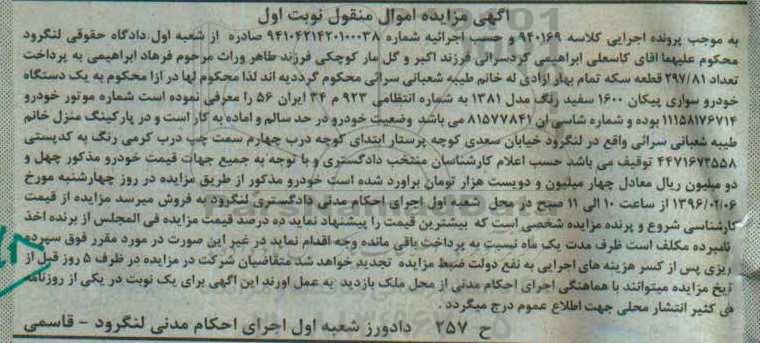 آگهی مزایده اموال منقول نوبت اول
به موجب پرونده اجرایی کلاسه ۹۴۰۱۶۹ و حسب اجرائیه شماره ۹۴۱۰۴۲۱۴۲۰۱۰۰۰۳۸ صادره از شعبه اول دادگاه حقوقی لنگرود
محکوم علیهما اقای کاسعلی ابراهیمی گردسرائی فرزند اکبر و گل سار کوچکی فرزند طاهر وراث مرحوم فرهاد ابراهیمی به پرداخت
تعداد ۲۹۷/۸۱ قطعه سکه تمام بهار ازادی له خانم طیبه شعبانی سرائی محکوم گردیده اند لذا محکوم لها در ازا محکوم به یک دستگاه
خودرو سواری پیکان ۱۶۰۰ سفید رنگ مدل ۱۳۸۱ به شماره انتظامی ۹۲۳ م ۳۴ ایران ۵۶ را معرفی نموده است شماره موتور خودرو
۱۱۱۵۸۱۷۶۷۱۴ بوده و شماره شاسی ان ۸۱۵۷۷۸۴۱ می باشد وضعیت خودرو در حد سالم و اماده به کار است و در پارکینگ منزل خانم
طیبه شعبانی سرائی واقع در لنگرود خیابان سعدی کوچه پرستار ابتدای کوچه درب چهارم سمت چپ درب کرمی رنگ به کدپستی
۴۴۷۱۶۷۳۵۵۸ توقیف می باشد حسب اعلام کارشناسان منتخب دادگستری و با توجه به جمیع جهات قیمت خودرو مذکور چهل و
دو میلیون ریال معادل چهار میلیون و دویست هزار تومان براورد شده است خودرو مذکور از طریق مزایده در روز چهارشنبه مورخ
۱۳۹۶/۰۲/۰۶ از ساعت ۱۰ الی ۱۱ صبح در محل شعبه اول اجرای احکام مدنی دادگستری لنگرود به فروش میرسد مزایده از قیمت
کارشناسی شروع و برنده مزایده شخصی است که بیشترین قیمت را پیشنهاد نماید ده درصد قیمت مزایده فی المجلس از برنده اخذ
نامبرده مکلف است ظرف مدت یک ماه نسبت به پرداخت باقی مانده وجه اقدام نماید در غیر این صورت در مورد مقرر فوق سپرده
ریزی پس از کسر هزینه های اجرایی به نفع دولت ضبط مزایده تجدید خواهد شد متقاضیان شرکت در مزایده در ظرف ۵ روز قبل از
تاریخ مزایده میتوانند با هماهنگی اجرای احکام مدنی از محل ملک بازدید به عمل اورند این اگهی برای یک نوبت در یکی از روزنامه
های کثیر انتشار محلی جهت اطلاع عموم درج میگردد.
ح ۲۵۷ دادورز شعبه اول اجرای احکام مدنی لنگرود - قاسمی